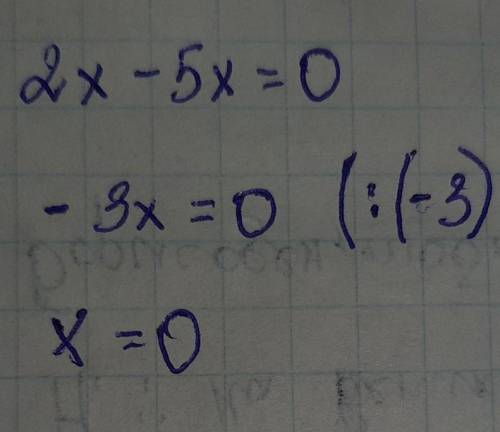 2x - 5x = 0
- 3x = 0 (:(-3)
x = 0